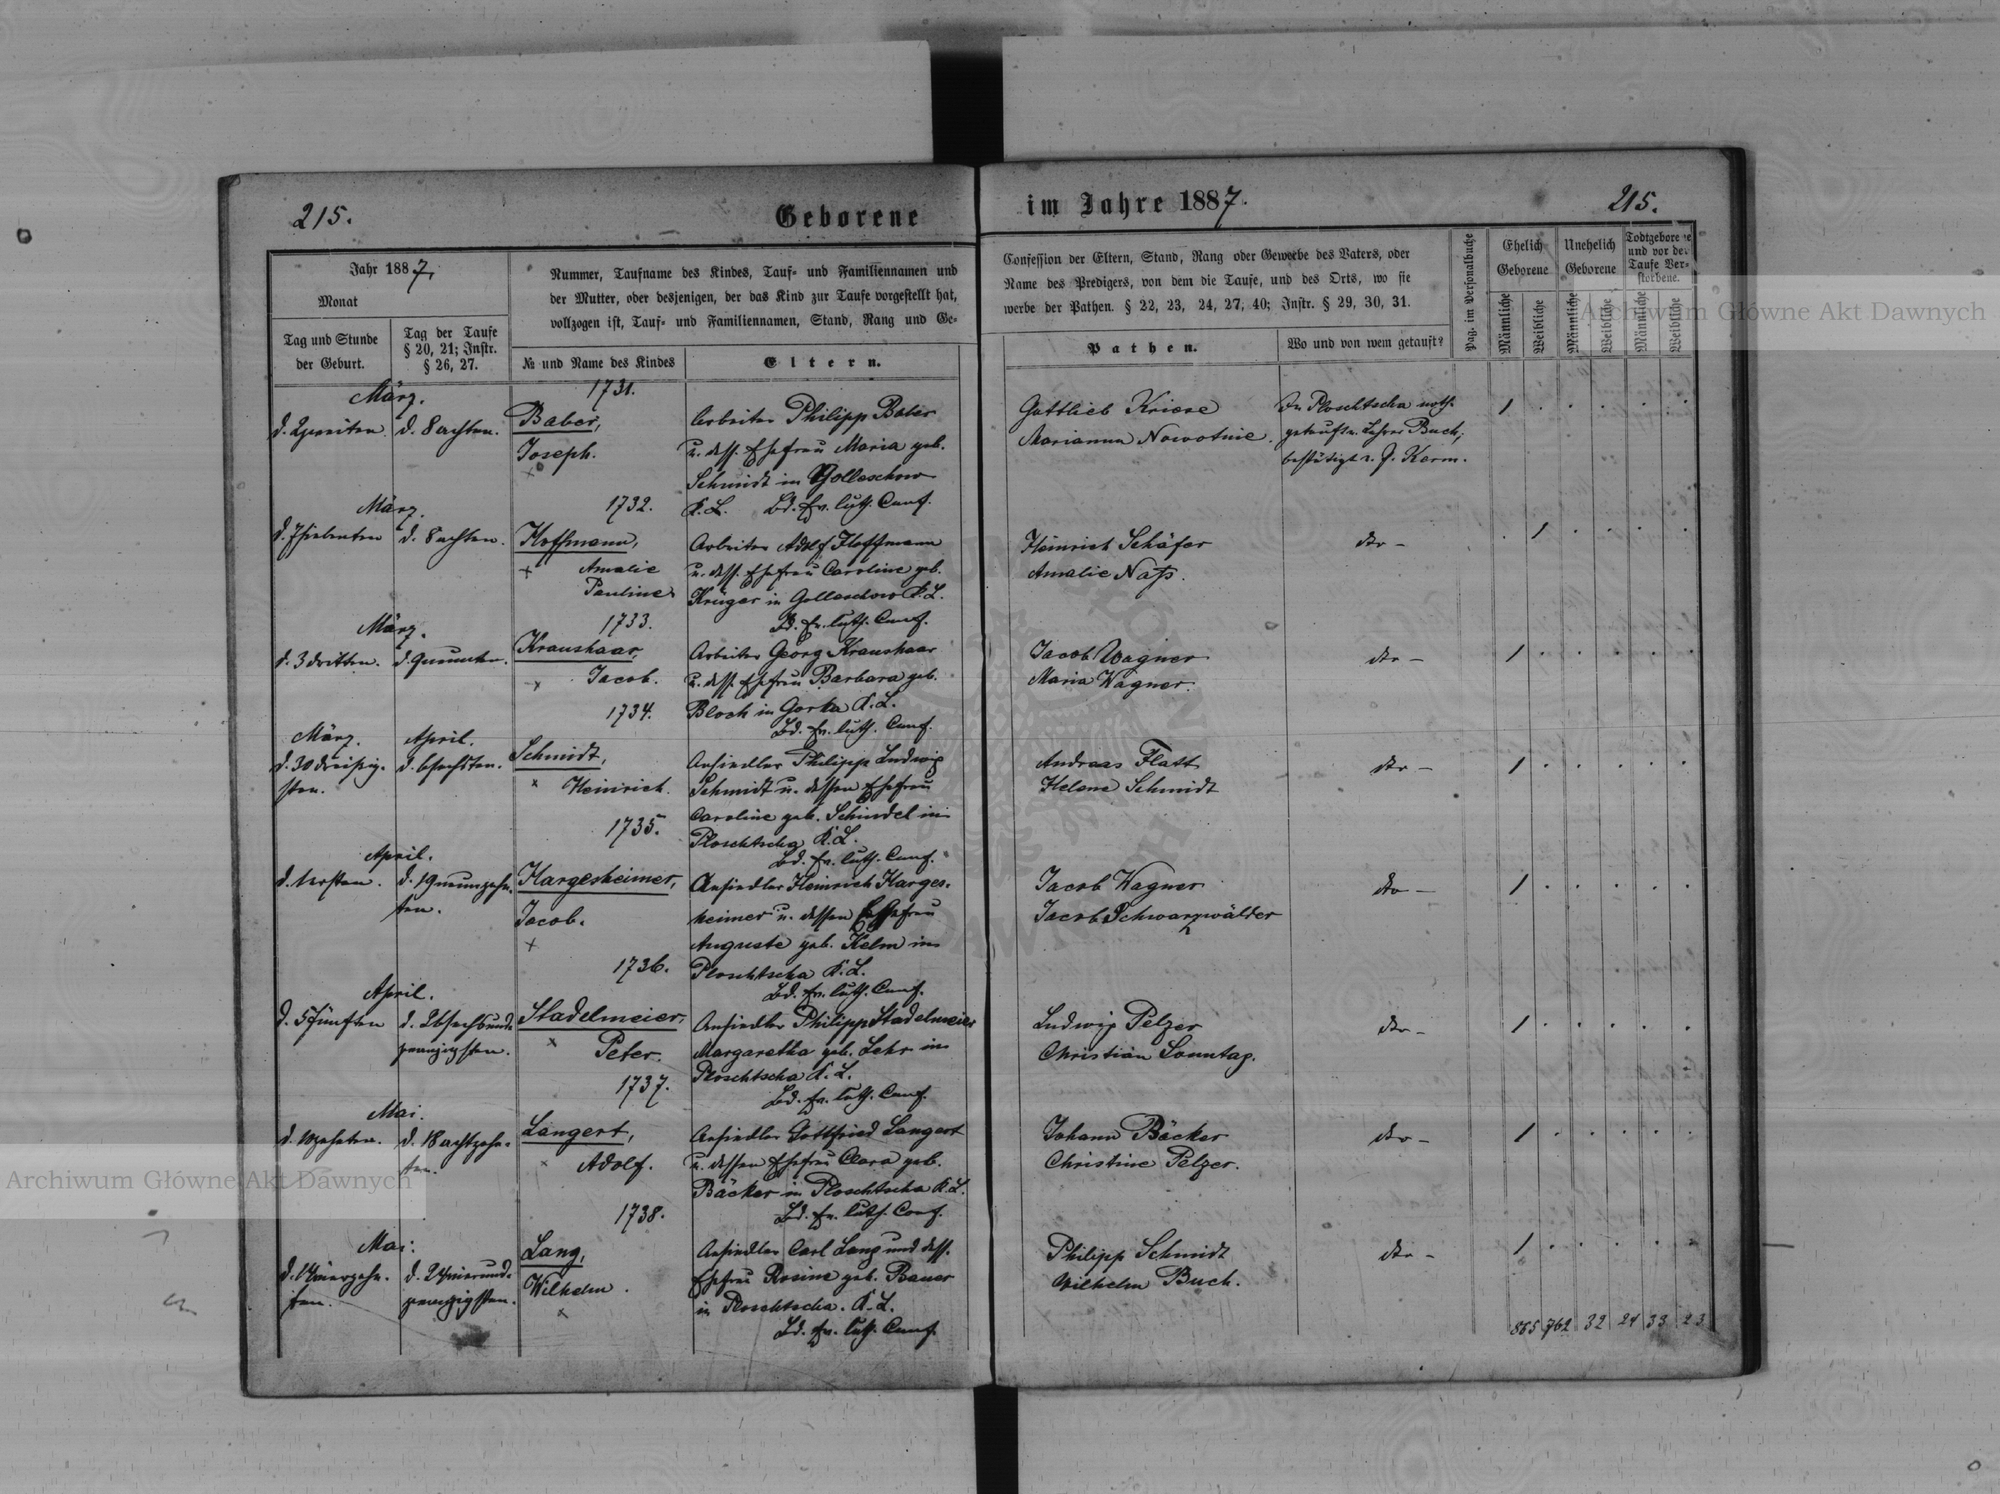 215.
Geborene
im Jahre 1887.
215.
Jahr 1887.
Monat
Tag und Stunde
der Geburt.
Tag der Taufe
§ 20, 21; Instr.
§ 26, 27.
Nummer, Taufname des Kindes, Tauf- und Familiennamen und
der Mutter, oder desjenigen, der das Kind zur Taufe vorgestellt hat,
vollzogen ist, Tauf- und Familiennamen, Stand, Rang und Ge-
№ und Name des Kindes
Eltern.
Confession der Eltern, Stand, Rang oder Gewerbe des Vaters, oder
Name des Predigers, von dem die Taufe, und des Orts, wo sie
werbe der Pathen. § 22, 23, 24, 27, 40; Instr. § 29, 30, 31.
Pathen.
Wo und von wem getauft?
Pag. im Personalbuche
Ehelich
Geborene
Unehelich
Geborene
Todtgeborene
und vor der
Taufe Ver-
storbene.
Männliche
Weibliche
Männliche
Weibliche
Männliche
Weibliche
März.
d. 2 zweiten.
d. 8 achten.
1731.
Baber,
Joseph.
Arbeiter Philipp Baber
u. dess. Ehefrau Maria geb.
Schmidt in Golleschow
K. L. Bd. Ev. luth. Conf.
Gottlieb Kriese
Marianna Nowotnie.
In Ploschtscha noth-
getauft v. Lehrer Buch,
bestätigt v. P. Kerm.
1
März.
d. 7 siebenten
d. 8 achten.
1732.
Hoffmann,
Amalie
Pauline
Arbeiter Adolf Hoffmann
u. dess. Ehefrau Caroline geb.
Krüger in Golleschow K. L.
Bd. Ev. luth. Conf.
Heinrich Schäfer
Amalie Naß.
dto -
1
März.
d. 3 dritten.
d. 9 neunten.
1733.
Kraushaar,
Jacob.
Arbeiter Georg Kraushaar
u. dess. Ehefrau Barbara geb.
Bloch in Gorka K. L.
Bd. Ev. luth. Conf.
Jacob Wagner
Maria Wagner.
dto -
1
März.
April.
d. 30 dreißig-
sten.
d. 6 sechsten.
1734.
Schmidt,
Heinrich.
Ansiedler Philipp Ludwig
Schmidt u. dessen Ehefrau
Caroline geb. Schindel in
Ploschtscha K. L.
Bd. Ev. luth. Conf.
Andreas Flatt
Helene Schmidt
dto -
1
April.
d. 1 ersten.
d. 19 neunzehn-
ten.
1735.
Hargesheimer,
Jacob.
Ansiedler Heinrich Harges-
heimer u. dessen Ehefrau
Auguste geb. Kelm in
Ploschtscha K. L.
Bd. Ev. luth. Conf.
Jacob Wagner
Jacob Schwarzwälder
dto -
1
April.
d. 5 fünften
d. 26 sechsund-
zwanzigsten.
1736.
Stadelmeier,
Peter.
Ansiedler Philipp Stadelmeier
Margaretha geb. Lehr in
Ploschtscha K. L.
Bd. Ev. luth. Conf.
Ludwig Pelzer
Christian Sonntag.
dto -
1
Mai.
d. 10 zehnten.
d. 18 achtzehn-
ten.
1737.
Langert,
Adolf.
Ansiedler Gottfried Langert
u. dessen Ehefrau Clara geb.
Bäcker in Ploschtscha K. L.
Bd. Ev. luth. Conf.
Johann Bäcker
Christine Pelzer.
dto -
1
Mai.
d. 14 vierzehn-
ten.
d. 24 vierund-
zwanzigsten.
1738.
Lang,
Wilhelm.
Ansiedler Carl Lang und dess.
Ehefrau Rosine geb. Bauer
in Ploschtscha. K. L.
Bd. Ev. luth. Conf.
Philipp Schmidt
Wilhelm Buch.
dto -
1
885 762 32 24 33 23
Archiwum Główne Akt Dawnych
Archiwum Główne Akt Dawnych